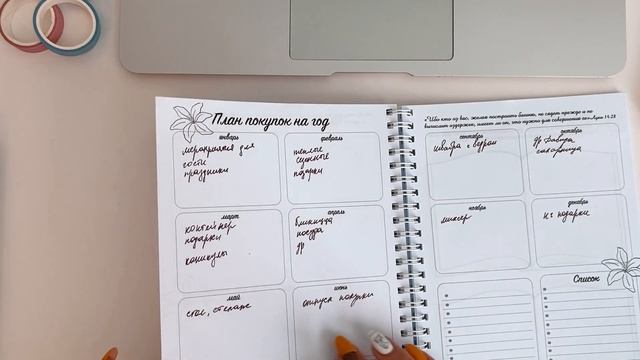 План покупок на год
январь
мероприятия для
гости
праздники
февраль
подарки
март
контейнер
подарки
каникулы
апрель
посуда
ДР
май
стол, стеллаж
июнь
отпуск покупки
«Ибо кто из вас, желая построить башню, не сядет прежде и не
вычислит издержек, имеет ли он, что нужно для совершения ее» Луки 14:28
сентябрь
октябрь
ДР
ноябрь
миксер
декабрь
нг подарки
Список